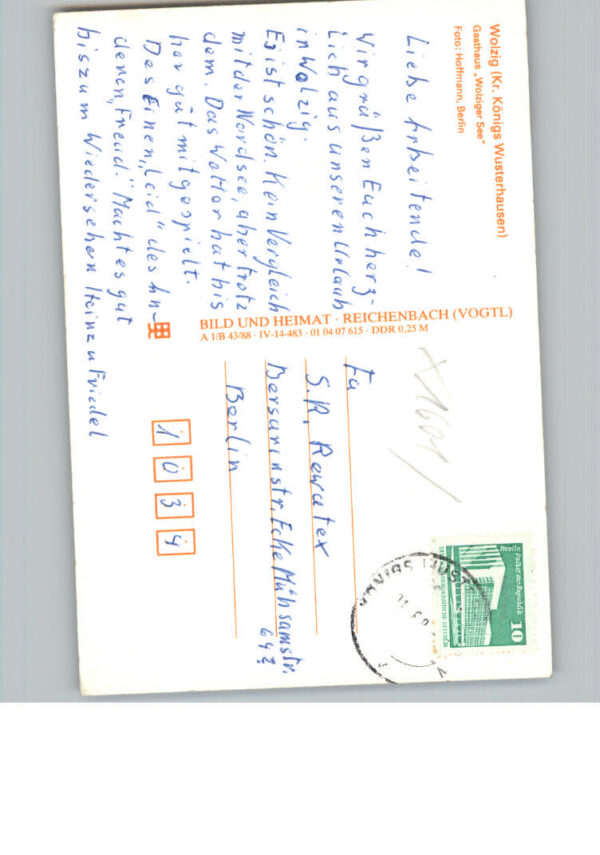 Wolzig (Kr. Königs Wusterhausen)
Gasthaus „Wolziger See"
Foto: Hoffmann, Berlin
Liebe Arbeitende!
Wir grüßen Euch herz-
lich aus unseren Urlaub
in Wolzig.
Es ist schön. Kein Vergleich
mit der Nordsee, aber trotz
dem. Das Wetter hat bis
her gut mitgespielt.
Des Einen „Leid" des An-
deren „Freud". Macht es gut
bis zum Wiedersehen Heinz u Friedel
BILD UND HEIMAT · REICHENBACH (VOGTL)
A 1/B 43/88 · IV-14-483 · 01 04 07 615 · DDR 0,25 M
Berlin, Palast der Republik
10
KÖNIGS WUST
Fa
S.R. Rewatex
Bersarinstr. Ecke Mühsamstr.
Berlin
1034